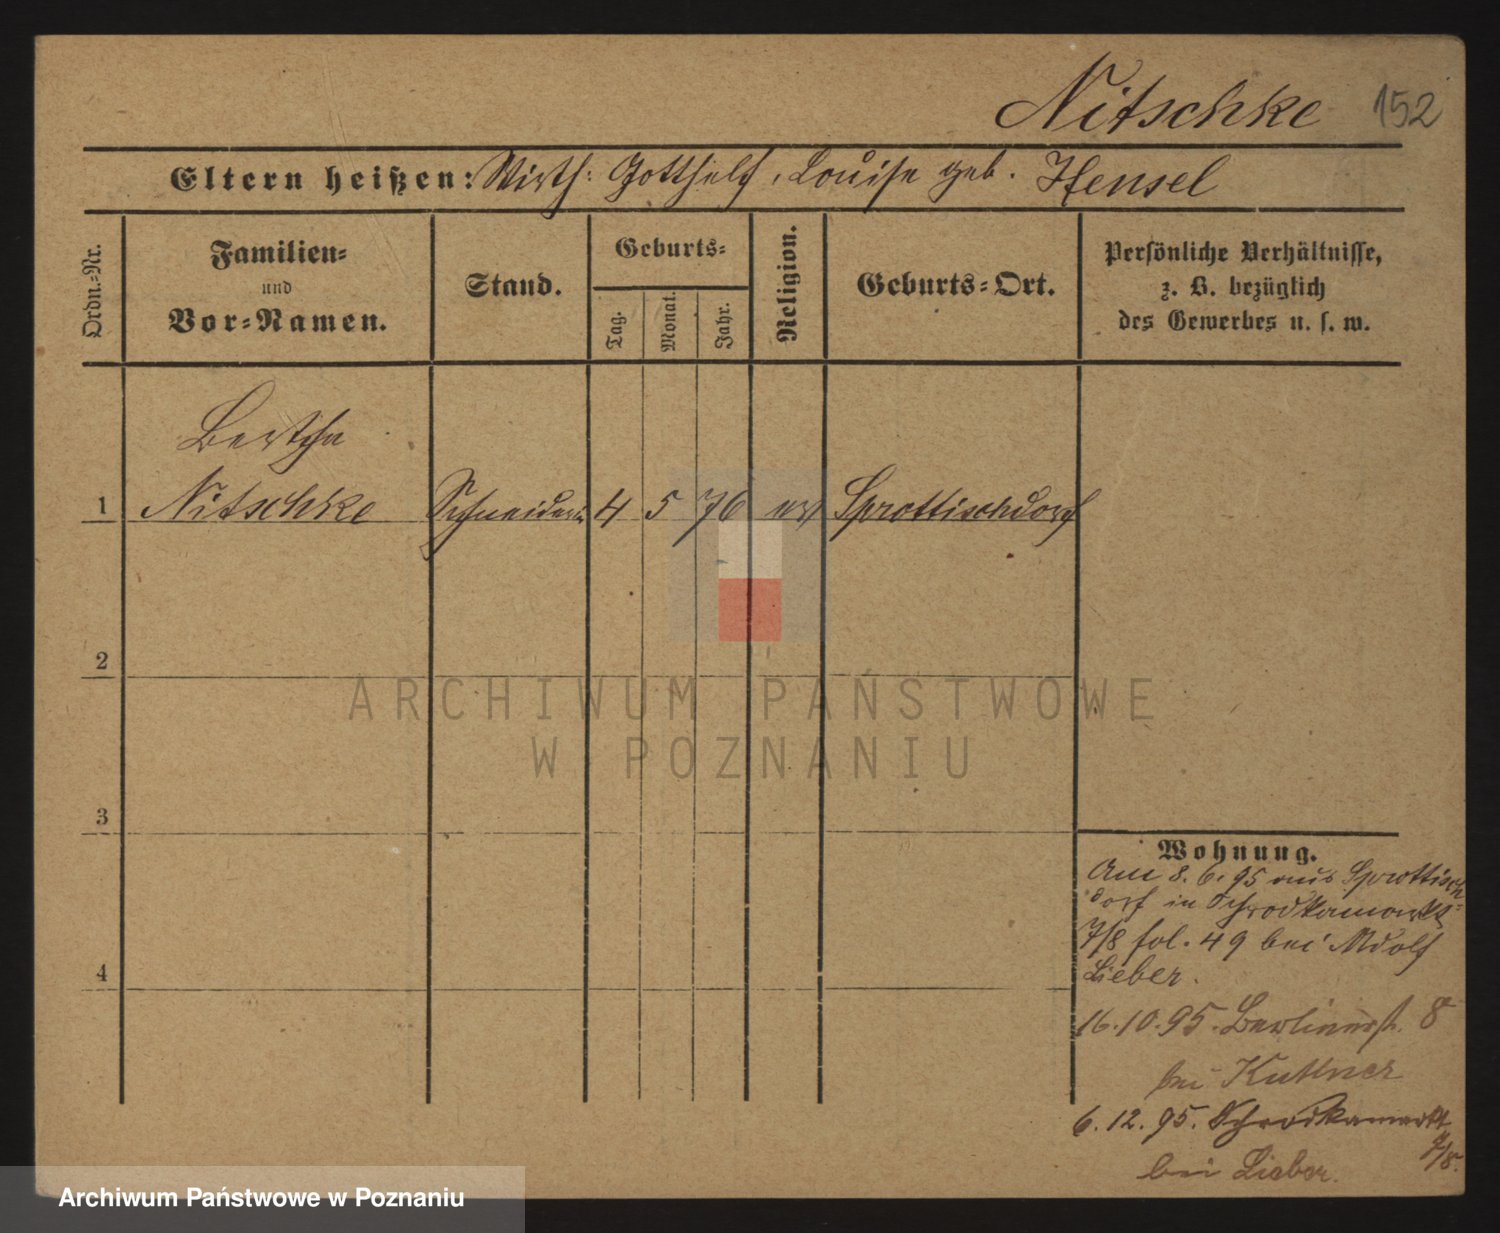 Nitschke 152
Eltern heißen: Wirth: Gotthelf, Louise geb. Hensel
Ordn.-Nr.
Familien-
und
Vor-Namen.
Stand.
Geburts-
Tag.
Monat.
Jahr.
Religion.
Geburts-Ort.
Persönliche Verhältnisse,
z. B. bezüglich
des Gewerbes u. s. w.
Bertha
1 Nitschke Schneiderin 4 5 76 ev Sprottischdorf
2
ARCHIWUM PAŃSTWOWE
W POZNANIU
3
4
Wohnung.
Am 8.6.95 aus Sprottisch
dorf in Schrodkamarkt
7/8 fol. 49 bei Adolf
Lieber.
16.10.95. Berlinerst. 8
bei Kuttner
6.12.95. Schrodkamarkt
7/8.
bei Lieber.
Archiwum Państwowe w Poznaniu